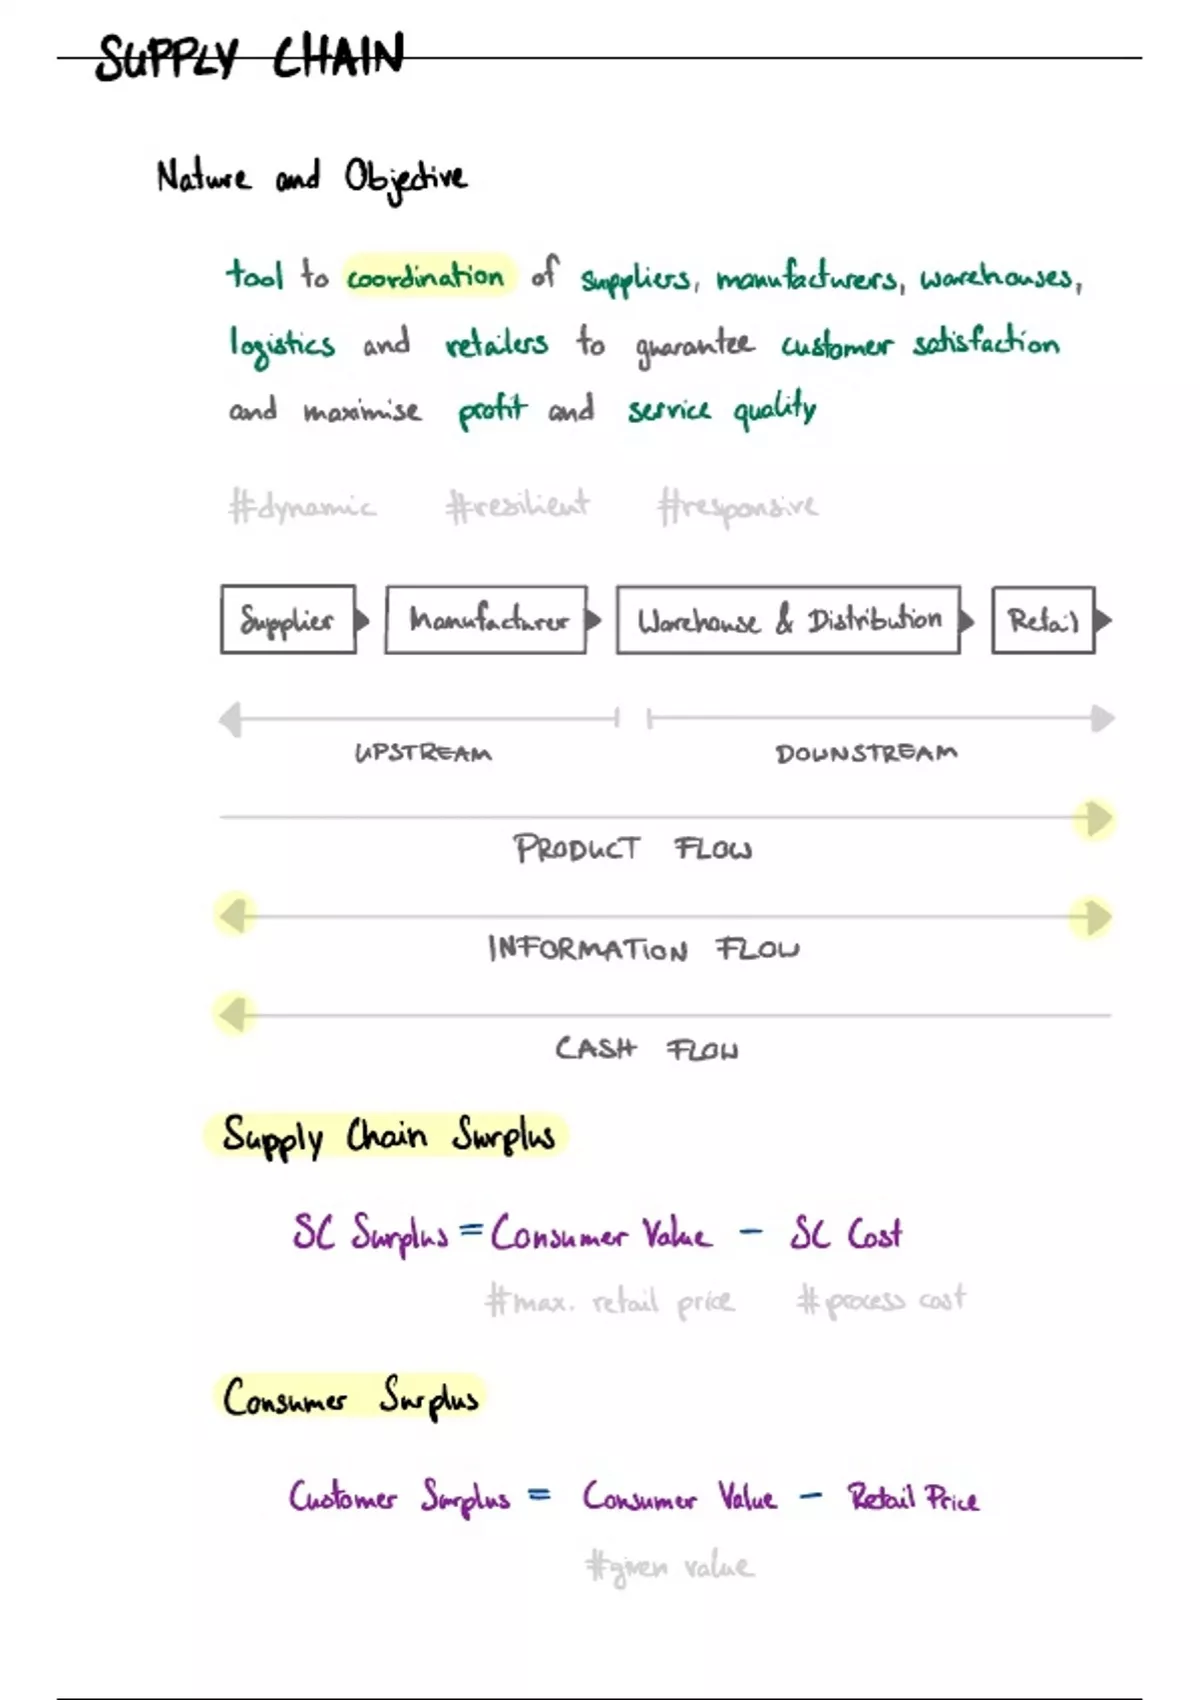 SUPPLY CHAIN
Nature and Objective
tool to coordination of suppliers, manufacturers, warehouses,
logistics and retailers to guarantee customer satisfaction
and maximise profit and service quality
#dynamic #resilient #responsive
Supplier Manufacturer Warehouse & Distribution Retail
UPSTREAM DOWNSTREAM
PRODUCT FLOW
INFORMATION FLOW
CASH FLOW
Supply Chain Surplus
SC Surplus = Consumer Value - SC Cost
#max. retail price #process cost
Consumer Surplus
Customer Surplus = Consumer Value - Retail Price
#given value